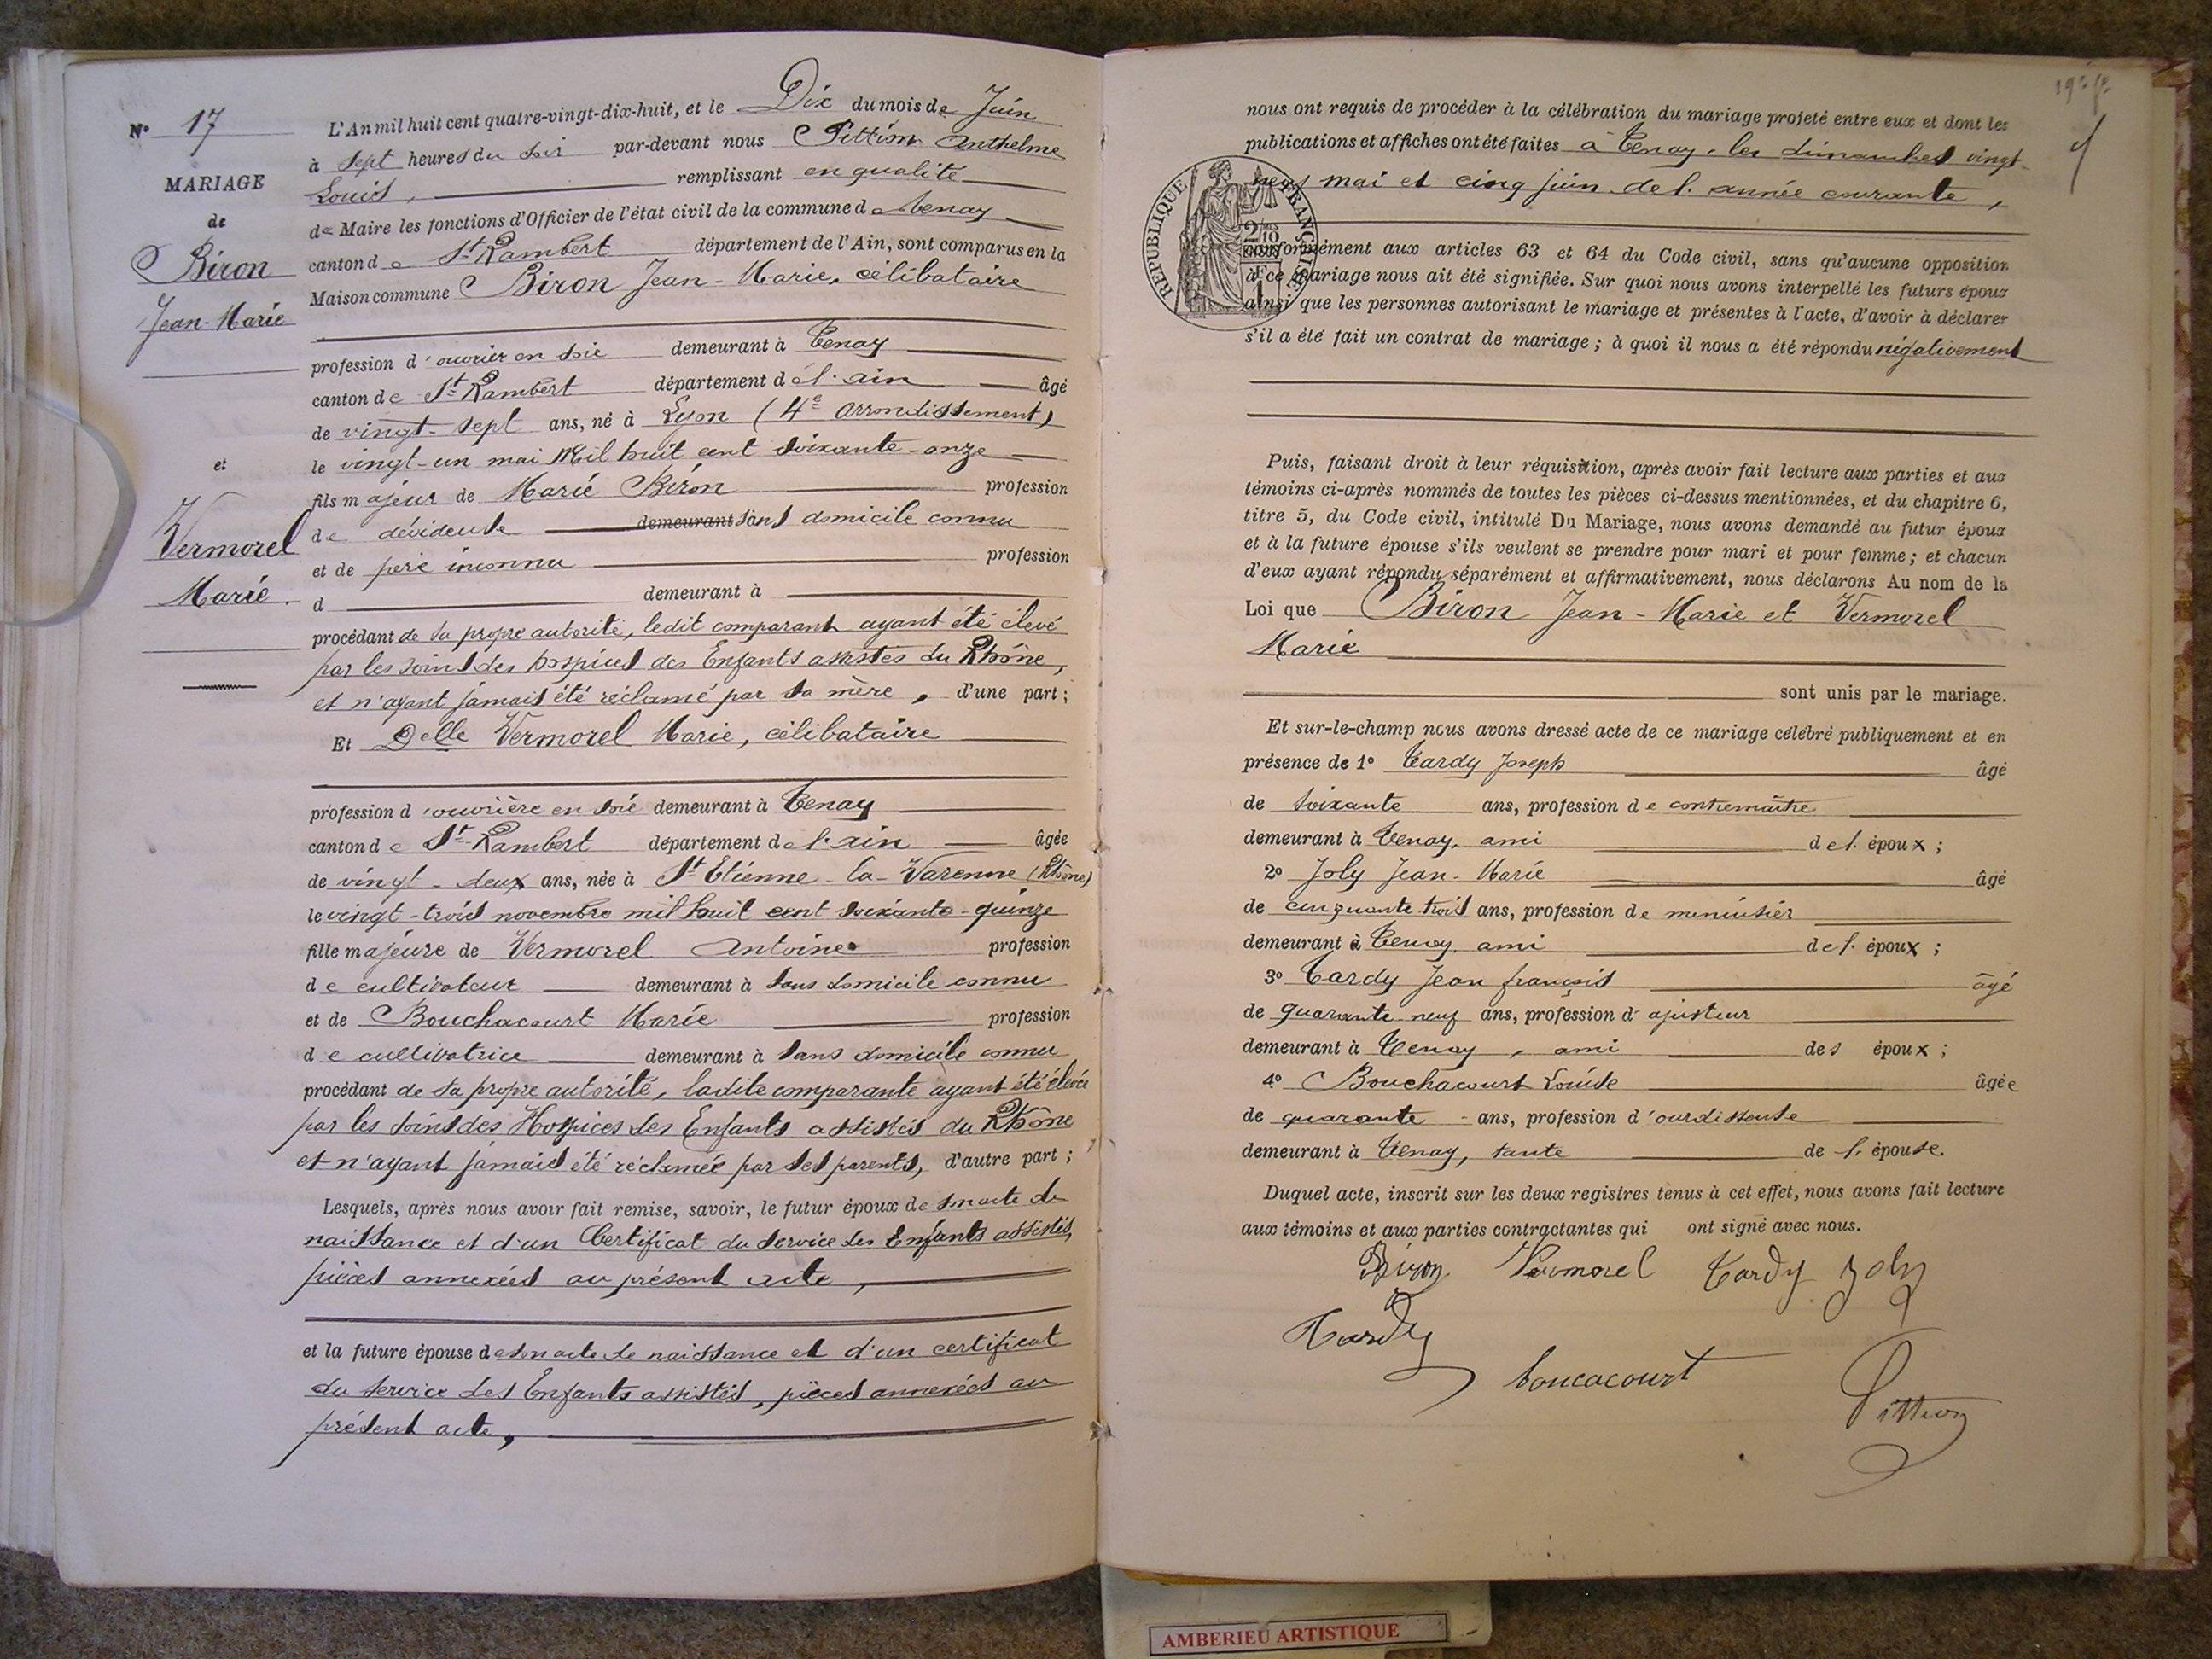 N° 17
MARIAGE
de
Biron
Jean-Marie
et
Vermorel
Marie.
L'An mil huit cent quatre-vingt-dix-huit, et le Dix du mois de Juin
à sept heures du soir par-devant nous Pittion Anthelme
Louis, remplissant en qualité
de Maire les fonctions d'Officier de l'état civil de la commune de Tenay
canton de St Rambert département de l'Ain, sont comparus en la
Maison commune Biron Jean-Marie, célibataire
profession d'ouvrier en soie demeurant à Tenay
canton de St Rambert département de l'ain âgé
de vingt-sept ans, né à Lyon (4e arrondissement)
le vingt-un mai Mil huit cent soixante-onze
fils majeur de Marie Biron profession
de dévideuse demeurant sans domicile connu
et de père inconnu profession
d demeurant à
procédant de sa propre autorité, ledit comparant ayant été élevé
par les soins des hospices des Enfants assistés du Rhône,
et n'ayant jamais été réclamé par sa mère, d'une part;
Et Delle Vermorel Marie, célibataire
profession d'ouvrière en soie demeurant à Tenay
canton de St-Rambert département de l'ain âgée
de vingt-deux ans, née à St Etienne-la-Varenne (Rhône)
le vingt-trois novembre mil huit cent soixante-quinze
fille majeure de Vermorel Antoine profession
de cultivateur demeurant à sans domicile connu
et de Bouchacourt Marie profession
de cultivatrice demeurant à sans domicile connu
procédant de sa propre autorité, ladite comparante ayant été élevée
par les soins des Hospices des Enfants assistés du Rhône
et n'ayant jamais été réclamée par ses parents, d'autre part;
Lesquels, après nous avoir fait remise, savoir, le futur époux de son acte de
naissance et d'un Certificat du service des Enfants assistés,
pièces annexées au présent acte,
et la future épouse de son acte de naissance et d'un certificat
du service des Enfants assistés, pièces annexées au
présent acte,
nous ont requis de procéder à la célébration du mariage projeté entre eux et dont les
publications et affiches ont été faites à Tenay, les dimanches vingt-
neuf mai et cinq juin de l'année courante,
REPUBLIQUE FRANÇAISE
conformément aux articles 63 et 64 du Code civil, sans qu'aucune opposition
à ce mariage nous ait été signifiée. Sur quoi nous avons interpellé les futurs époux
ainsi que les personnes autorisant le mariage et présentes à l'acte, d'avoir à déclarer
s'il a été fait un contrat de mariage; à quoi il nous a été répondu négativement
Puis, faisant droit à leur réquisition, après avoir fait lecture aux parties et aux
témoins ci-après nommés de toutes les pièces ci-dessus mentionnées, et du chapitre 6,
titre 5, du Code civil, intitulé Du Mariage, nous avons demandé au futur époux
et à la future épouse s'ils veulent se prendre pour mari et pour femme; et chacun
d'eux ayant répondu séparément et affirmativement, nous déclarons Au nom de la
Loi que Biron Jean-Marie et Vermorel
Marie
sont unis par le mariage.
Et sur-le-champ nous avons dressé acte de ce mariage célébré publiquement et en
présence de 1° Tardy Joseph âgé
de soixante ans, profession de contremaître
demeurant à Tenay, ami de l'époux;
2° Joly Jean-Marie âgé
de cinquante trois ans, profession de menuisier
demeurant à Tenay, ami de l'époux;
3° Tardy Jean françois âgé
de quarante-neuf ans, profession d'ajusteur
demeurant à Tenay, ami des époux;
4° Bouchacourt Louise âgée
de quarante ans, profession d'ourdisseuse
demeurant à Tenay, tante de l'épouse.
Duquel acte, inscrit sur les deux registres tenus à cet effet, nous avons fait lecture
aux témoins et aux parties contractantes qui ont signé avec nous.
Biron Vermorel Tardy Joly
Tardy
boucacourt
Pittion
AMBERIEU ARTISTIQUE